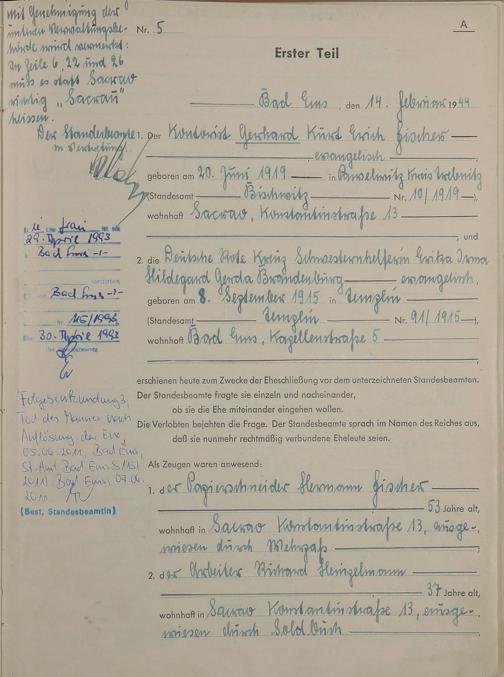 Mit Genehmigung der
unteren Verwaltungsbe-
hörde wird vermerkt:
In Zeile 6, 22 und 26
muss es statt Sacrao
richtig „Sacrau"
heissen.
Der Standesbeamte
in Vertretung:
Nr. 5
A
Erster Teil
Bad Ems, den 14. Februar 1944
1. Der Kontorist Gerhard Kurt Erich Fischer
evangelisch
geboren am 20. Juni 1919 in Pawelwitz Kreis Trebnitz
(Standesamt Bischwitz Nr. 10/1919),
wohnhaft Sacrao, Konstantinstraße 13
, und
2. die Deutsche Rote Kreuz Schwesternhelferin Erika Irma
Hildegard Gerda Brandenburg evangelisch,
geboren am 8. September 1915 in Templin
(Standesamt Templin Nr. 91/1915),
wohnhaft Bad Ems, Kapellenstraße 5
erschienen heute zum Zwecke der Eheschließung vor dem unterzeichneten Standesbeamten.
Der Standesbeamte fragte sie einzeln und nacheinander,
ob sie die Ehe miteinander eingehen wollen.
Die Verlobten bejahten die Frage. Der Standesbeamte sprach im Namen des Reiches aus,
daß sie nunmehr rechtmäßig verbundene Eheleute seien.
Als Zeugen waren anwesend:
1. der Papierschneider Hermann Fischer
53 Jahre alt,
wohnhaft in Sacrao Konstantinstraße 13, ausge-
wiesen durch Wehrpaß
2. der Arbeiter Richard Heinzelmann
37 Jahre alt,
wohnhaft in Sacrao Konstantinstraße 13, ausge-
wiesen durch Soldbuch
Frau
29. April 1993
Bad Ems -1-
Bad Ems -1-
115/1993
30. April 1993
Folgebeurkundung 3,
Tod des Mannes nach
Auflösung der Ehe,
05.06.2011, Bad Ems,
St.Amt Bad Ems S/151
2011, Bad Ems, 07.06.
2011
(Best, Standesbeamtin)